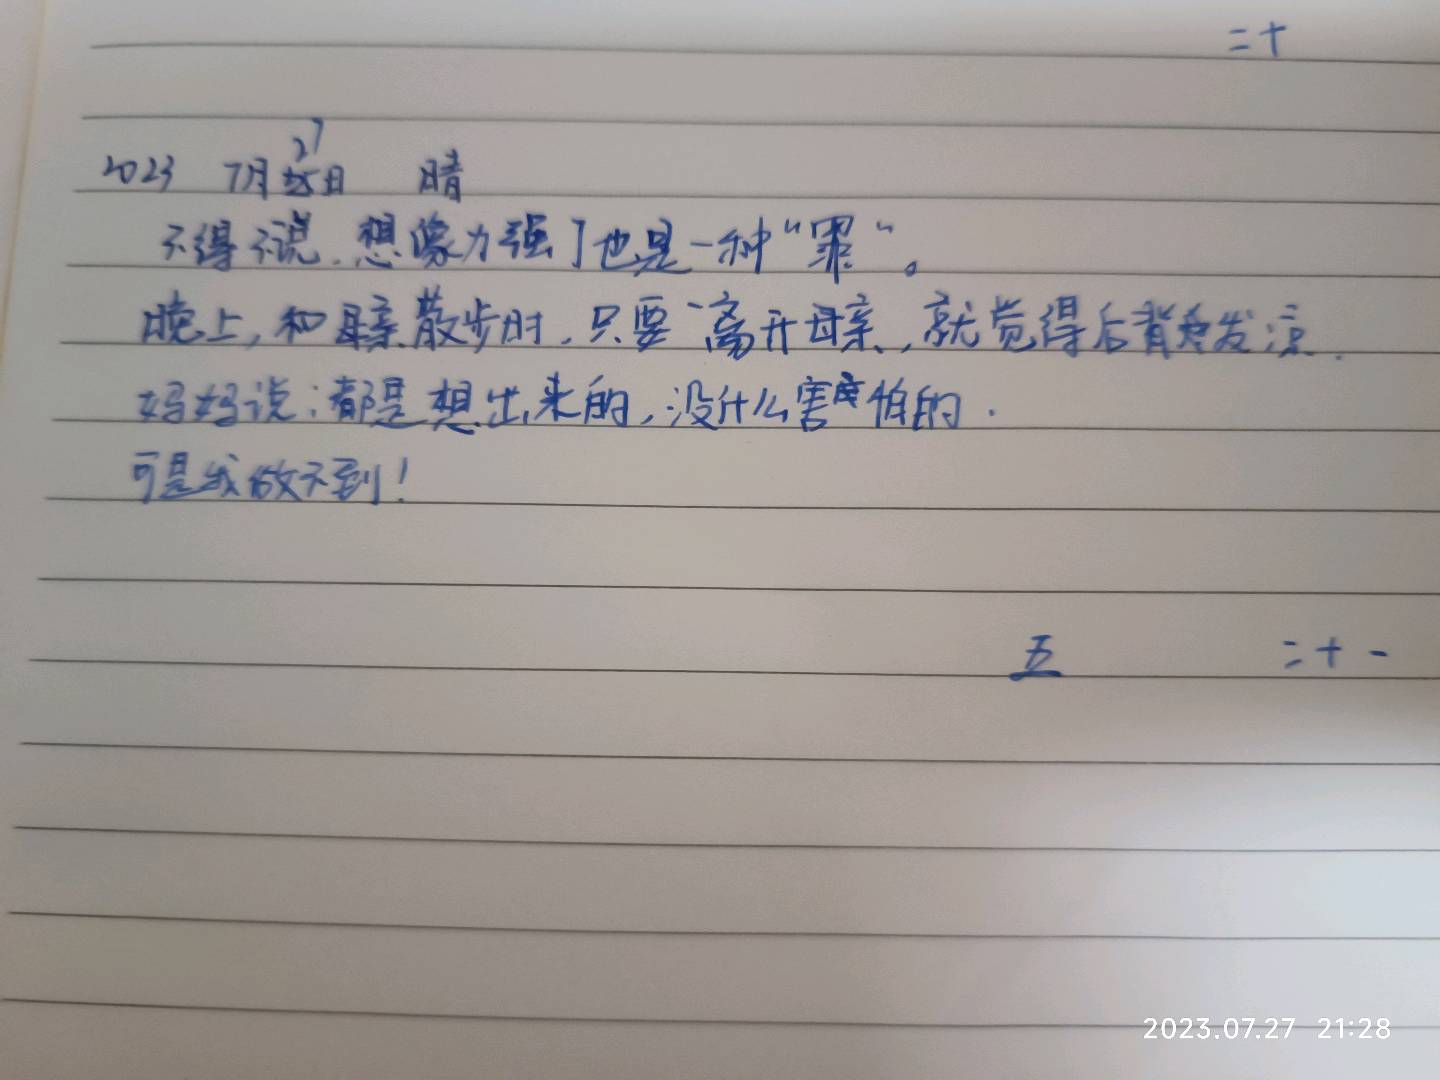 二十
2023 7月27日 晴
不得不说,想像力强了也是一种“罪“。
晚上,和母亲散步时,只要一离开母亲,就觉得后背发凉.
妈妈说:都是想出来的,没什么害怕的.
可是我做不到!
五 二十一
2023.07.27 21:28